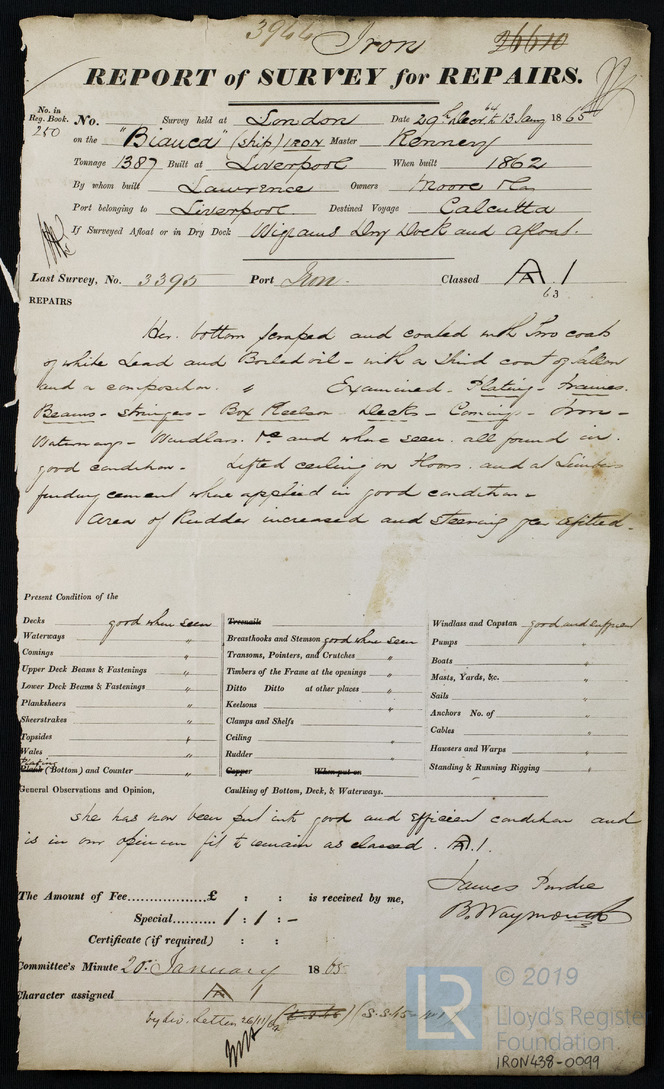 3944 Iron 26610
REPORT of SURVEY for REPAIRS.
No. in Reg. Book. 250
No. Survey held at London Date 29th Decr. 64 to 13 Jany 1865
on the "Bianca" (Ship) IRON Master Kenney
Tonnage 1387 Built at Liverpool When built 1862
By whom built Lawrence Owners Moore & Co
Port belonging to Liverpool Destined Voyage Calcutta
If Surveyed Afloat or in Dry Dock Wigrams Dry Dock and afloat.
Last Survey, No. 3395 Port Iron. Classed A 1
63
REPAIRS
Her bottom scraped and coated with two coats
of white Lead and Boiled oil - with a third coat of tallow
and a composition. " Examined - Plating - Frames.
Beams - Stringers - Box Keelson - Decks - Comings - Iron -
Waterways - Windlass. &c and where seen. all found in.
good condition - Lifted ceiling on Floors. and at Limbers
finding cement where applied in good condition -
Area of Rudder increased and steering gear refitted.
Present Condition of the
Decks good when seen
Waterways "
Comings "
Upper Deck Beams & Fastenings "
Lower Deck Beams & Fastenings "
Planksheers "
Sheerstrakes "
Topsides "
Wales "
Plating
Plank (Bottom) and Counter "
Treenails
Breasthooks and Stemson good where seen
Transoms, Pointers, and Crutches "
Timbers of the Frame at the openings "
Ditto Ditto at other places "
Keelsons "
Clamps and Shelfs "
Ceiling "
Rudder "
Copper When put on
Windlass and Capstan good and efficient
Pumps "
Boats "
Masts, Yards, &c. "
Sails "
Anchors No. of "
Cables "
Hawsers and Warps "
Standing & Running Rigging "
General Observations and Opinion, Caulking of Bottom, Deck, & Waterways.
She has now been put into good and efficient condition and
is in our opinion fit to remain as classed. A.1.
James Purdie
B. Waymouth
The Amount of Fee................£ : : is received by me,
Special.......... 1 : 1 : -
Certificate (if required) : :
Committee's Minute 20th January 1865
Character assigned A 1
© 2019
LR
Lloyd's Register
Foundation.
IRON438-0099